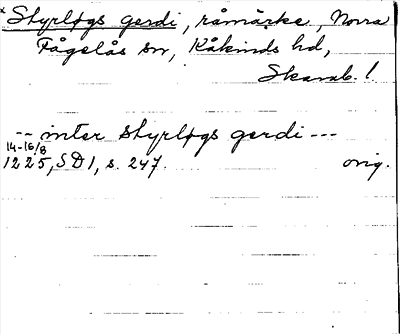 * Styrløgs gerdi, råmärke, Norra
Fågelås sn, Kåkinds hd,
Skarab. l.
-- inter styrløgs gerdi ---
14-16/8
1225, SD 1, s. 247. orig.